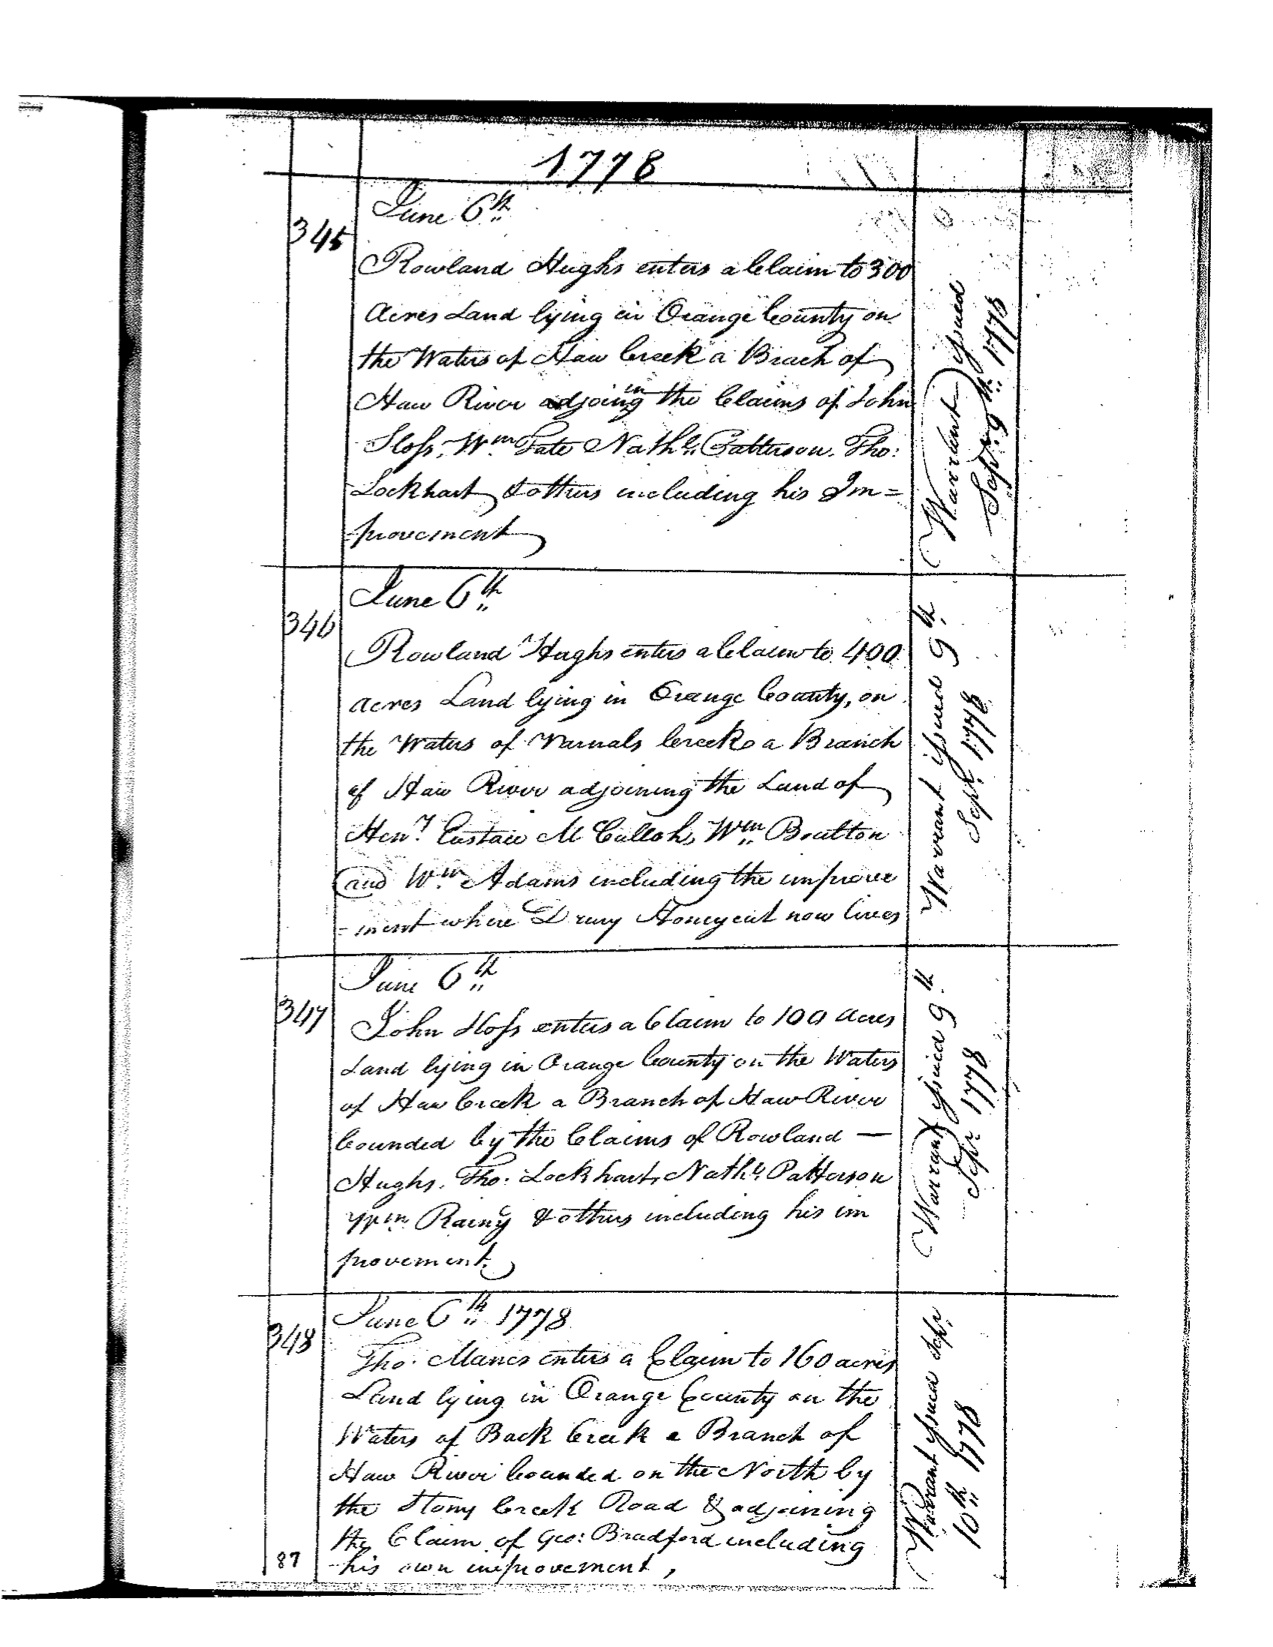 1778
345
June 6th
Rowland Hughs enters a Claim to 300
Acres Land lying in Orange County on
the Waters of Haw Creek a Brach of
Haw River adjoining the Claims of John
Sloss, Wm Tate Nathl. Patterson. Tho:
Lockhart & others including his Im=
-provement
Warrent issued
Sepr. 9th 1778
346
June 6th
Rowland Hughs enters a Claim to 400
acres Land lying in Orange County, on
the Waters of Varnals Creek a Branch
of Haw River adjoining the Land of
Heny. Eustace McCulloh, Wm Boulton
and Wm Adams including the improve
-ment where Drury Honeycut now lives
Warrant issued 9th
Sepr. 1778
347
June 6th
John Sloss enters a Claim to 100 acres
Land lying in Orange County on the Waters
of Haw Creek a Branch of Haw River
bounded by the Claims of Rowland —
Hughs. Tho: Lockhart, Nathl. Patterson
Wm Rainy & others including his im
provement.
Warrant issuid 9th
Sepr 1778
348
June 6th 1778
Tho. Manes enters a Claim to 160 acres
Land lying in Orange County on the
Waters of Back Creek a Branch of
Haw River bounded on the North by
the Stony Creek Road & adjoining
the Claim of Geo: Bradford including
his own improvement,
Warrant issued Sepr.
10th 1778
87